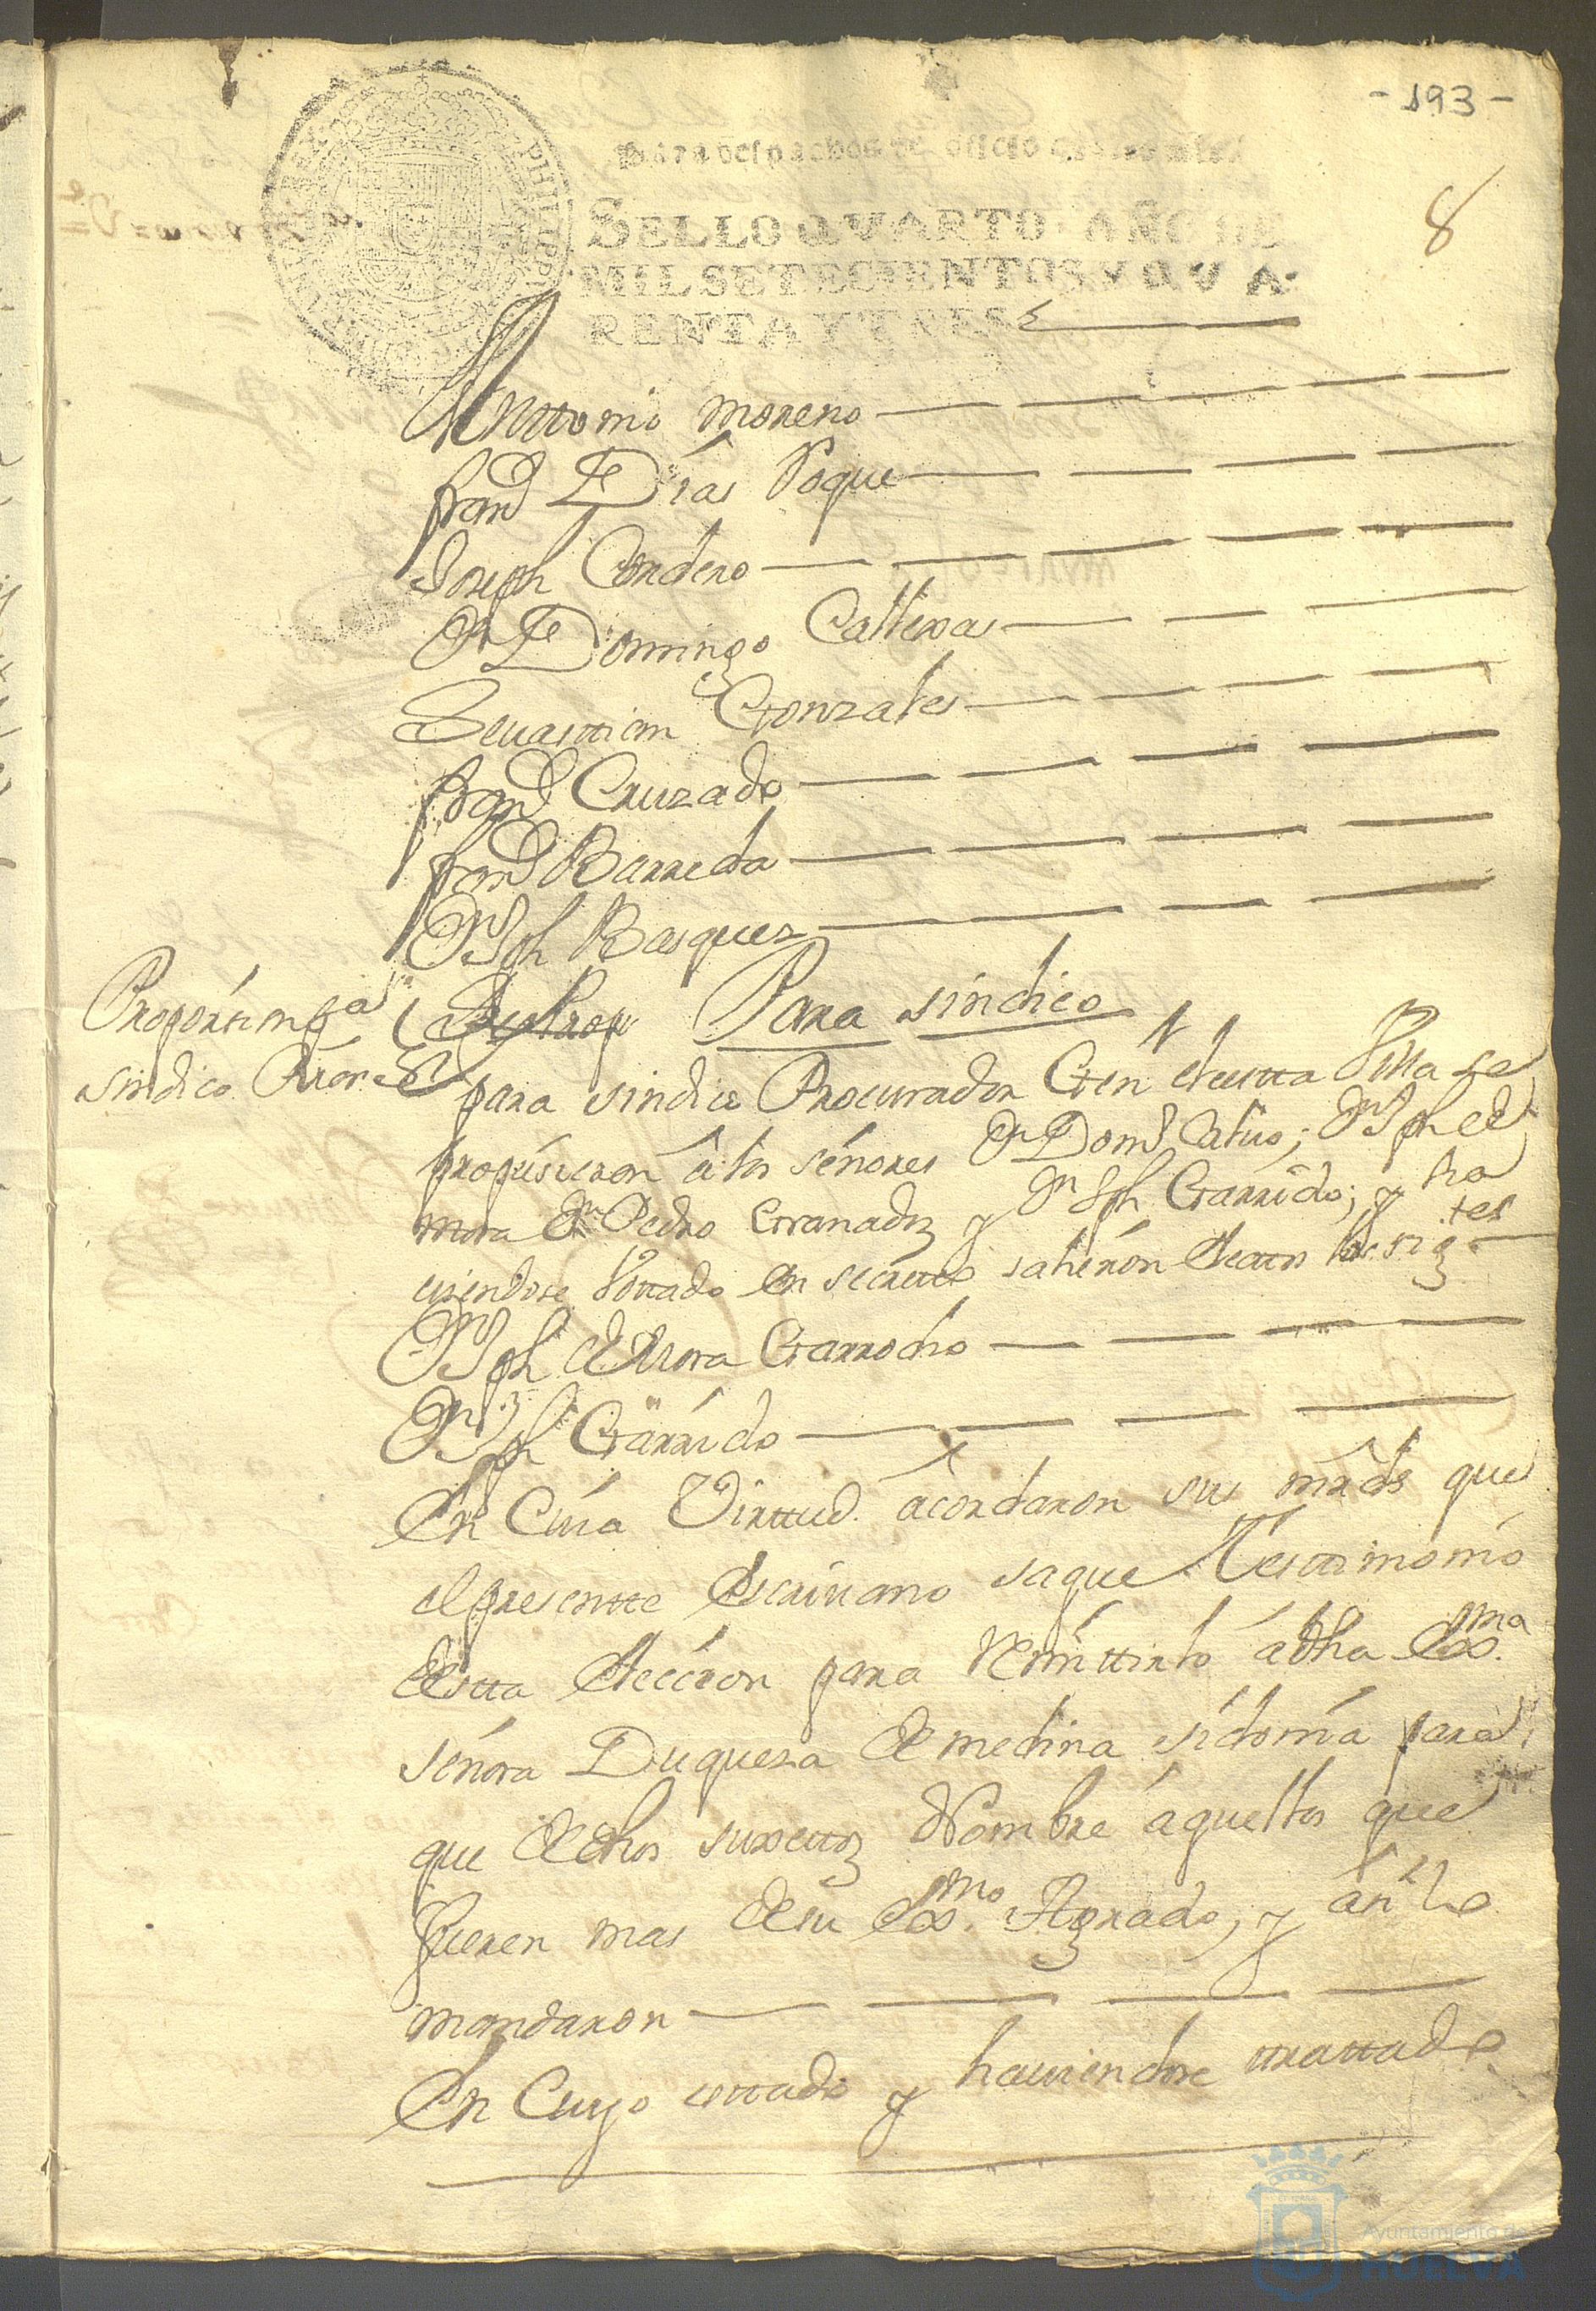 - 193 -
8
Para despachos de oficio
SELLO QVARTO AÑO DE
MIL SETECIENTOS Y QVA
RENTA Y TRES
Anttonio Moreno
franco Dias Roque
Joseph Cordero
Dn Domingo Callexas
Sevasttian Gonzales
franco Cruzado
franco Barreda
Dn Jph Basquez
Para sindico
Proporsion pa
sindico Pror Gl
para sindico Procurador Gen desta Villa se
propusieron â los señores Dn Domo Calvo; Dn Jph de
mora Dn Pedro Granado y Dn Jph Garrido; y ha
viendose Vottado en secreto salieron electos los sigtes
Dn Jph de Mora Garrocho
Dn Jph Garrido
En Cuia Virttud acordaron sus mrds que
el presentte Escrivano saque Testtimonio
destta elección para Remittirlo a dha Exma
señora Duqueza de medina sidonia para
que de dhos suxetos Nombre aquellos que
fueren mas de su Exmo Agrado; y así lo
mandaron
En Cuyo esttado y haviendose trattado
Ayuntamiento de
HUELVA